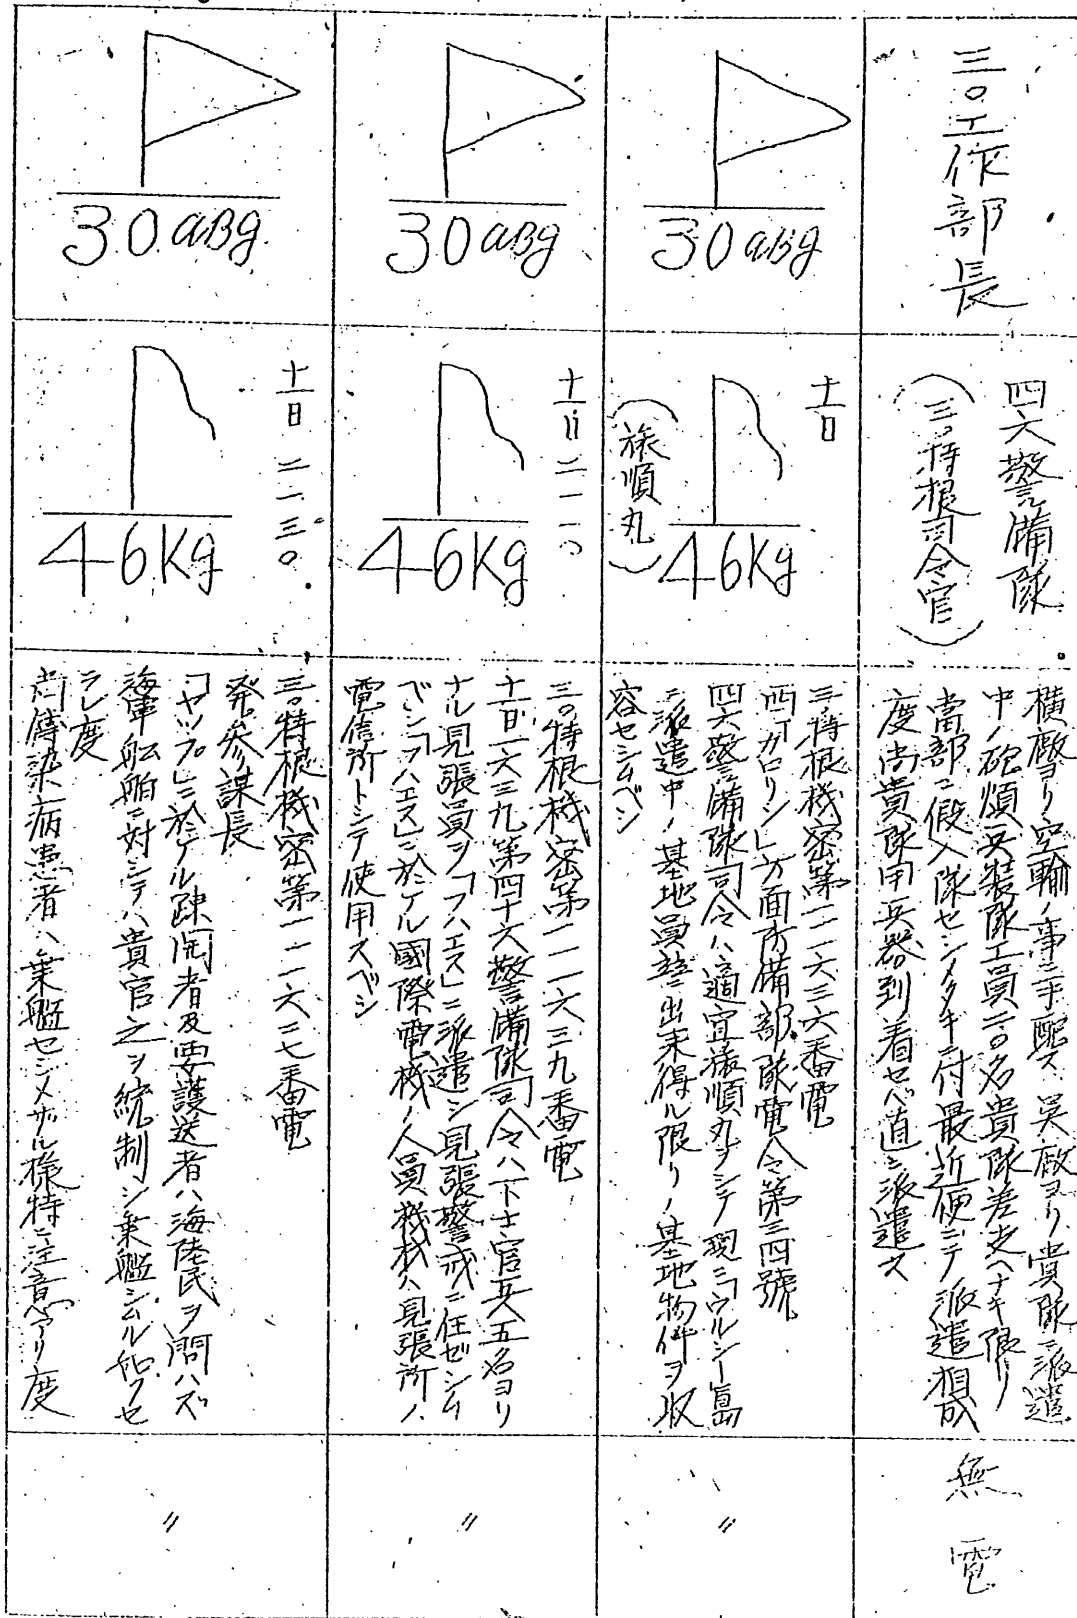 三〇工作部長
四六警備隊
(三〇特根司令官)
横廠ヨリ空輸ノ事ニ手配ス 呉廠ヨリ貴隊ニ派遣
中ノ砲熕兵装隊工員二〇名貴隊差支ヘナキ限リ
當部ニ假入隊セシメタキニ付最近便ニテ派遣相成
度尚貴隊用兵器到着セバ直ニ派遣ス
無電
30aBg
十一日
46Kg
(旅順丸)
三〇特根機密第一一一六三六番電
西「カロリン」方面所備部隊電令第三四號
四六警備隊司令ハ適宜旅順丸ヲシテ現ニ「ウルシー」島
ニ派遣中ノ基地員並ニ出来得ル限リノ基地物件ヲ収
容セシムベシ
〃
30aBg
十一日 二一一〇
46Kg
三〇特根機密第一一一六三九番電
十一日一六三九第四十六警備隊司令ハ下士官兵五名ヨリ
ナル見張員ヲ「フハエス」ニ派遣シ見張警戒ニ任ゼシム
ベシ「フハエス」ニ於ケル國際電機ノ人員機材ハ見張所ノ
電信所トシテ使用スベシ
〃
30aBg
十一日 二一三〇
46Kg
三〇特根機密第一一一六二七番電
発参謀長
「ヤップ」ニ於ケル疎開者及要護送者ハ海陸民ヲ問ハズ
海軍船舶ニ対シテハ貴官之ヲ統制シ乗艦シムル如クセ
ラレ度
尚傳染病患者ハ乗艦セシメザル様特ニ注意アリ度
〃